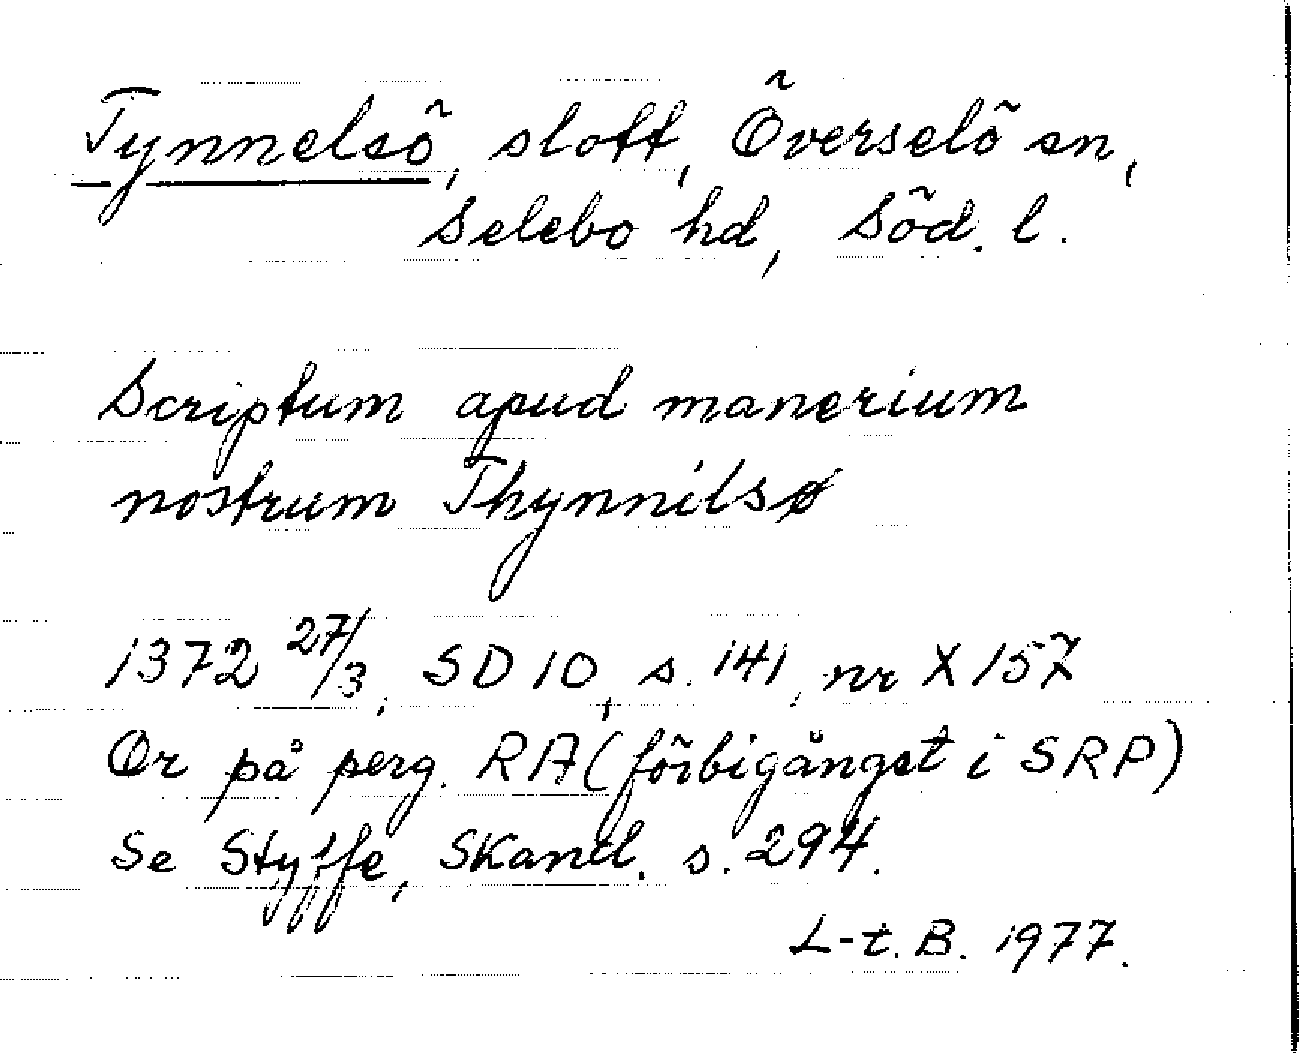 Tynnelsö, slott, Överselö sn,
Selebo hd, Söd. l.
Scriptum apud manerium
nostrum Thynnilsø
1372 27/3, SD 10, s. 141, nr X 157
Or på perg. RA (förbigånget i SRP)
Se Styffe, Skand. s. 294.
L-t. B. 1977.